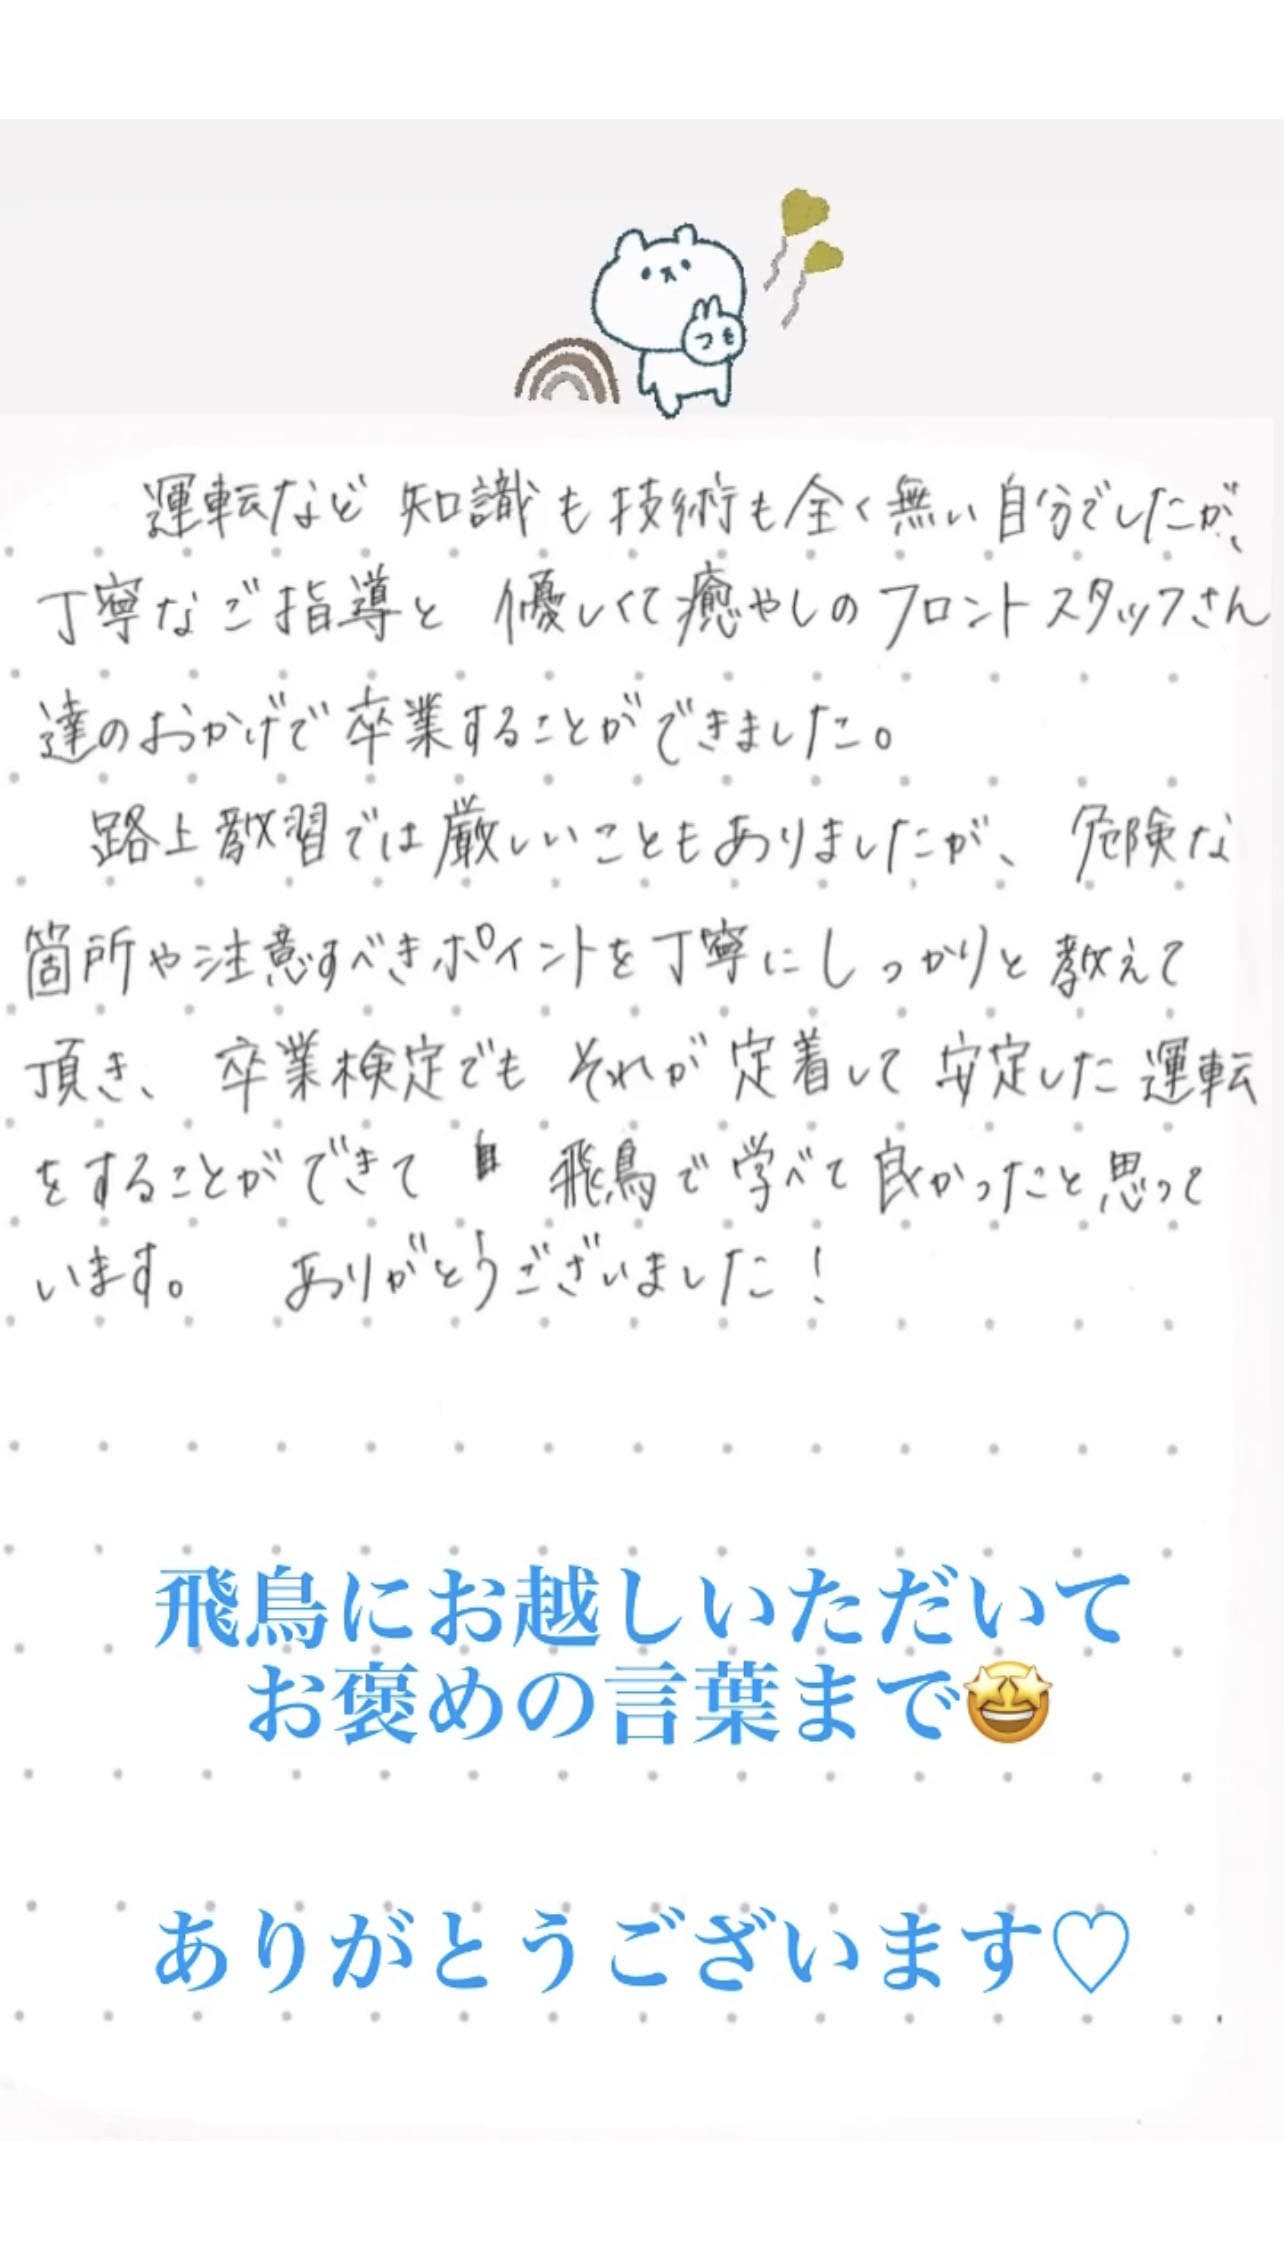 つも
運転など知識も技術も全く無い自分でしたが、
丁寧なご指導と優しくて癒やしのフロントスタッフさん
達のおかげで卒業することができました。
路上教習では厳しいこともありましたが、危険な
箇所や注意すべきポイントを丁寧にしっかりと教えて
頂き、卒業検定でもそれが定着して安定した運転
をすることができて 飛鳥で学べて良かったと思って
います。 ありがとうございました！
飛鳥にお越しいただいて
お褒めの言葉まで🤩
ありがとうございます♡